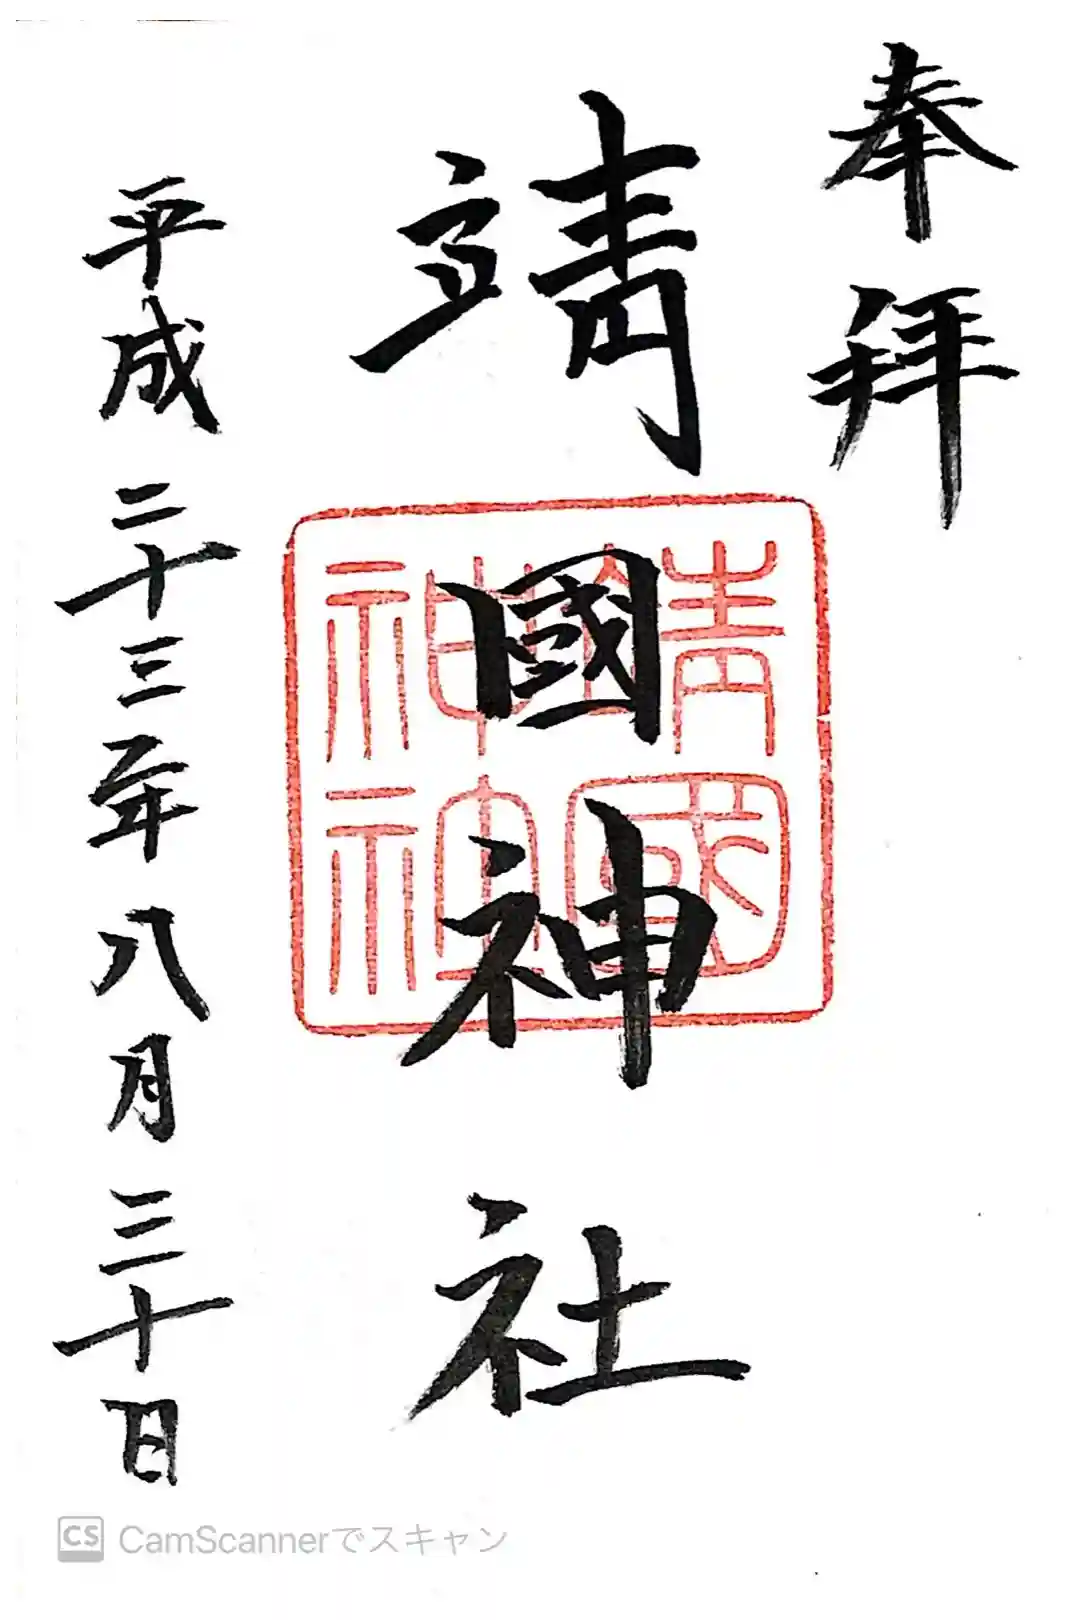 奉拝
靖國神社
靖國
神社
平成二十三年八月三十日
CS CamScannerでスキャン